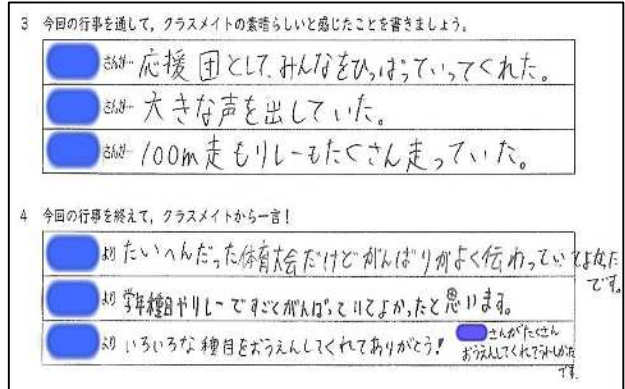 3 今回の行事を通して,クラスメイトの素晴らしいと感じたことを書きましょう。
さんが…応援団として、みんなをひっぱっていってくれた。
さんが…大きな声を出していた。
さんが…100m走もリレーもたくさん走っていた。
4 今回の行事を終えて,クラスメイトから一言!
より たいへんだった体育大会だけどがんばりがよく伝わっていてよかった
です。
より 学年種目やリレーですごくがんばっていてよかったと思います。
より いろいろな種目をおうえんしてくれてありがとう!
さんがたくさん
おうえんしてくれてうれしかった
です。